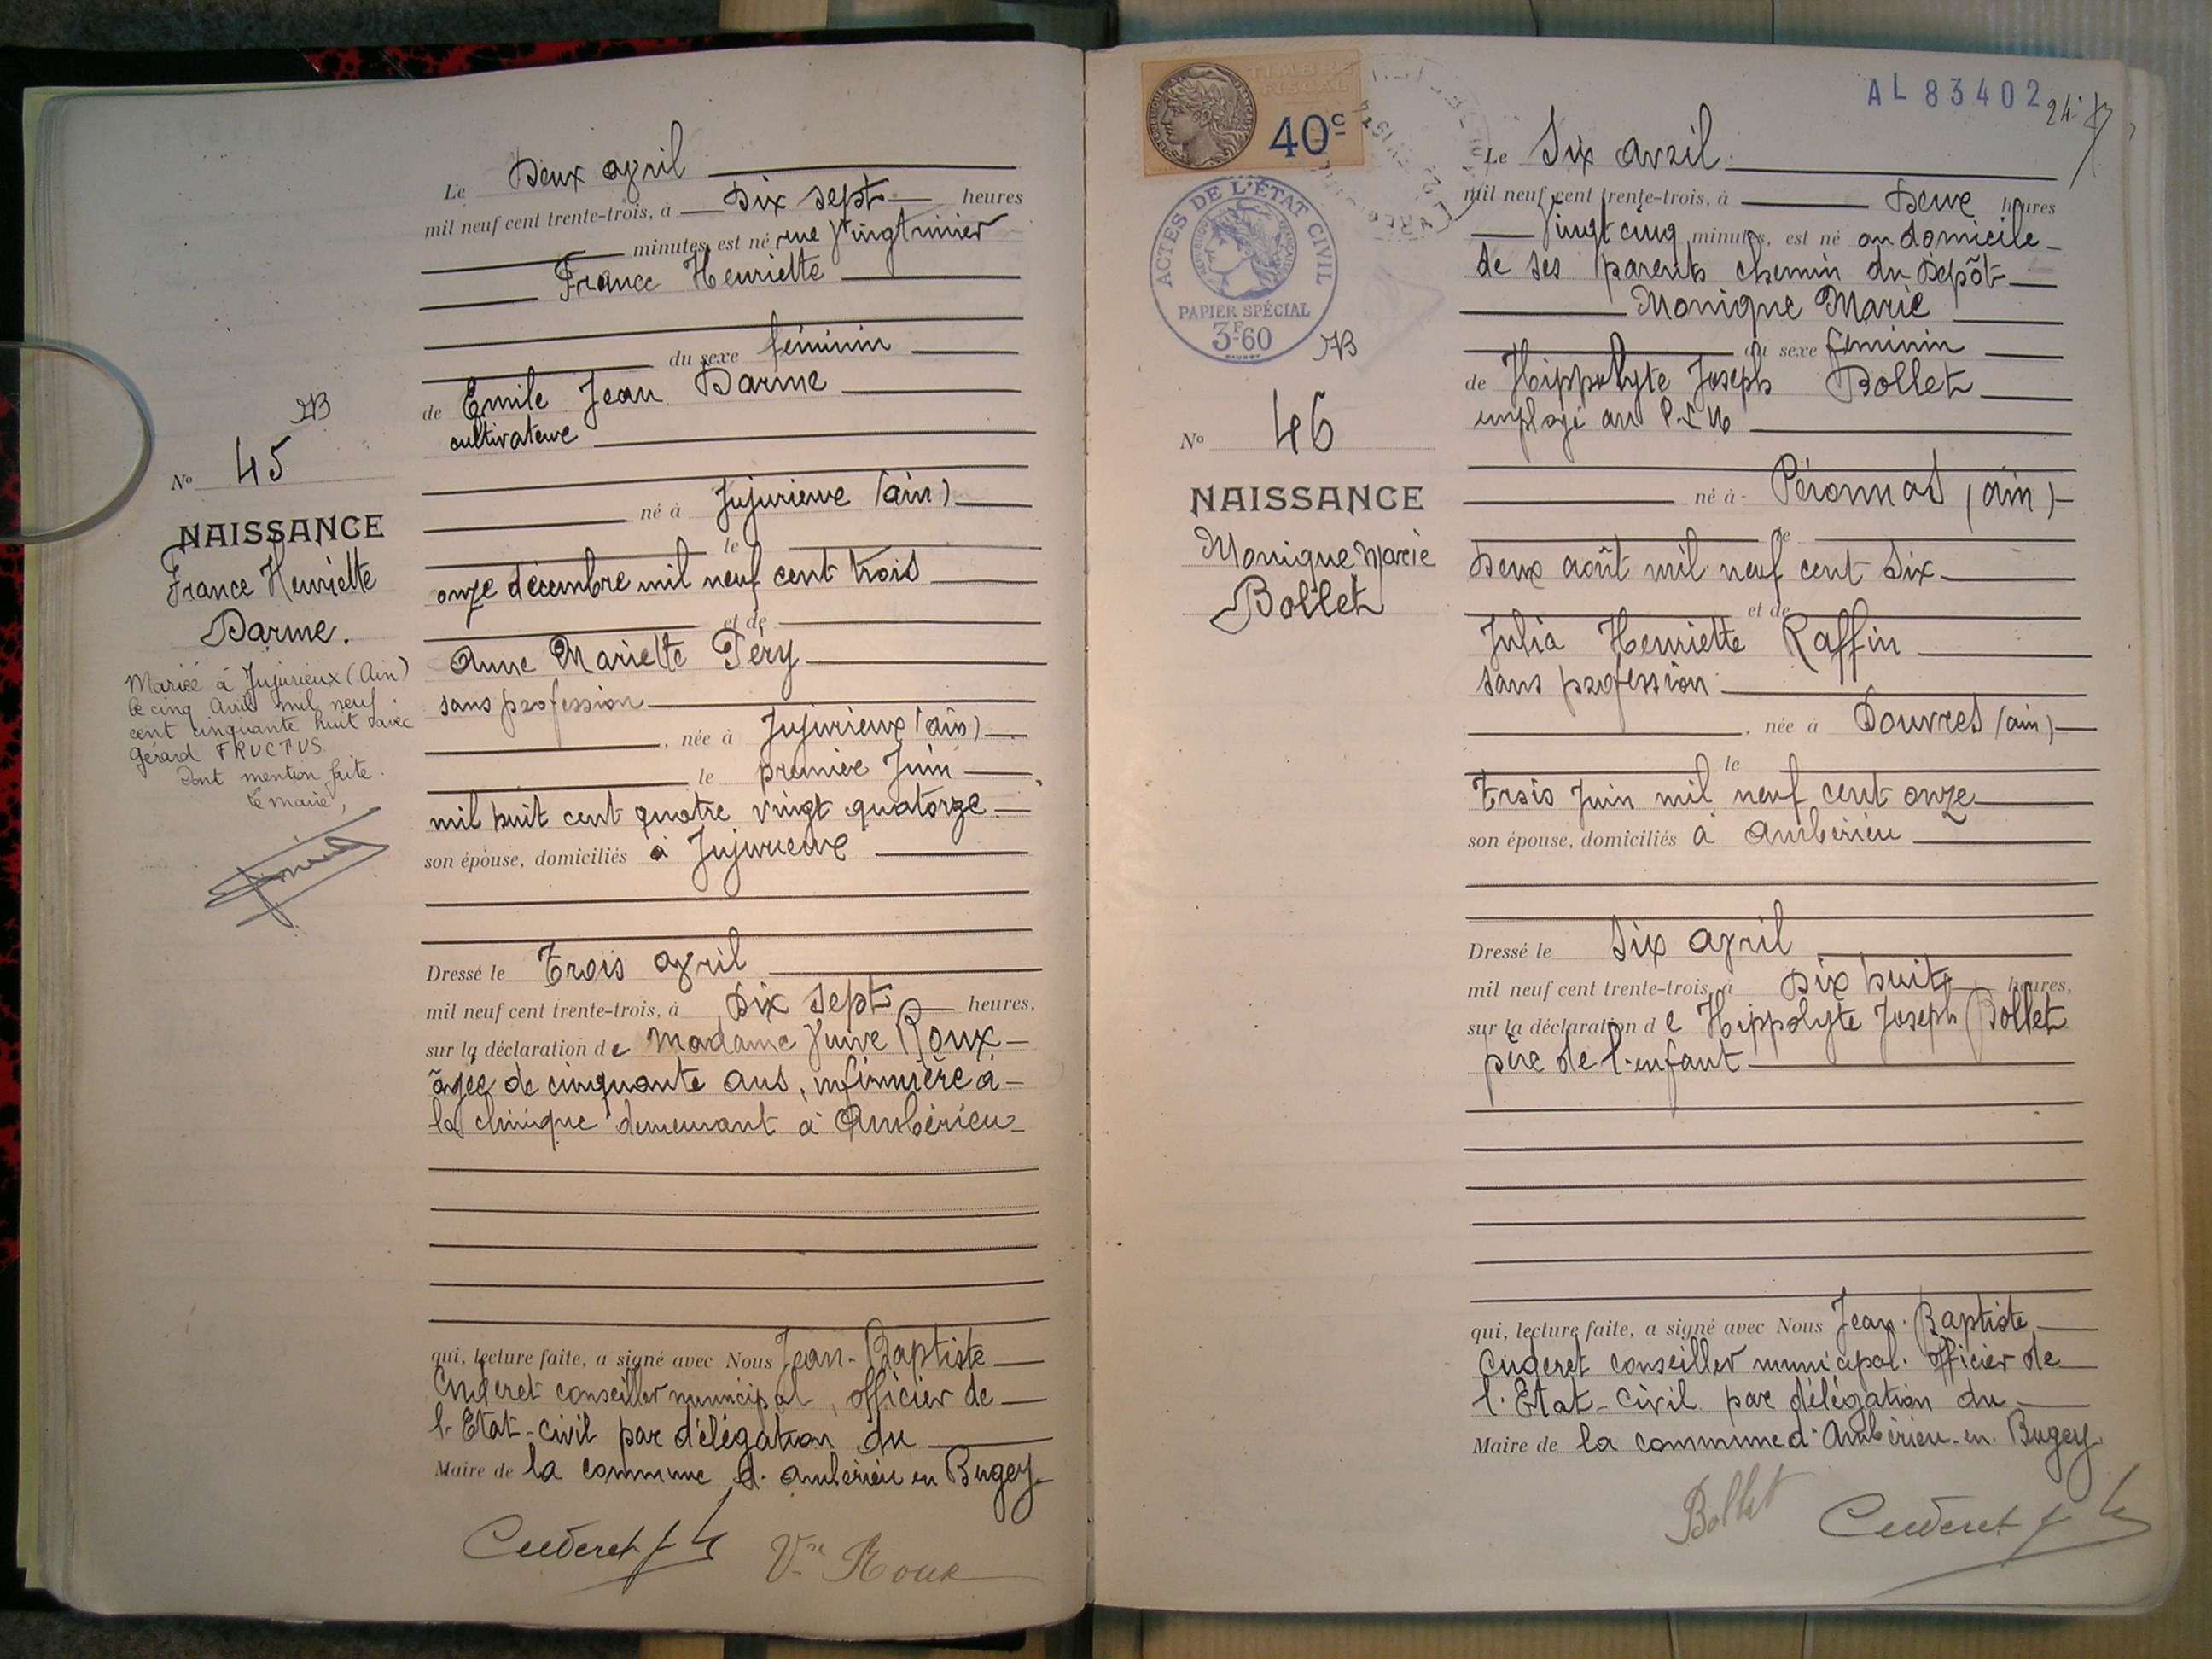 Le Deux avril
mil neuf cent trente-trois, à Dix sept heures
minutes, est né rue Vingtrinier
France Henriette
du sexe féminin
de Emile Jean Darme
cultivateur
né à Jujurieux (ain)
le
onze décembre mil neuf cent trois
et de
Anne Mariette Péry
sans profession
, née à Jujurieux (ain)
le premier Juin
mil huit cent quatre vingt quatorze
son épouse, domiciliés à Jujurieux
Dressé le Trois avril
mil neuf cent trente-trois, à Dix sept heures,
sur la déclaration de Madame Veuve Roux
âgée de cinquante ans, infirmière à
la clinique demeurant à Ambérieu
qui, lecture faite, a signé avec Nous Jean-Baptiste
Cuderet conseiller municipal, officier de
l'Etat-Civil par délégation du
Maire de la commune d'Ambérieu en Bugey
Cuderet
Vve Roux
No 45
NAISSANCE
France Henriette
Darme.
Mariée à Jujurieux (Ain)
le cinq Avril mil neuf
cent cinquante huit avec
Gérard FRUCTUS
Dont mention faite.
Le maire,
TIMBRE
FISCAL
40c
ACTES DE L'ÉTAT CIVIL
PAPIER SPÉCIAL
3F60
AL 83402
No 46
NAISSANCE
Monique Marie
Bollet
Le Six avril
mil neuf cent trente-trois, à Deux heures
Vingt cinq minutes, est né au domicile
de ses parents chemin du Dépôt
Monique Marie
du sexe féminin
de Hippolyte Joseph Bollet
employé au P.L.M
né à Péronnas (ain)
le
Deux août mil neuf cent Six
et de
Julia Henriette Raffin
sans profession
, née à Douvres (ain)
le
Trois Juin mil neuf cent onze
son épouse, domiciliés à Ambérieu
Dressé le Six avril
mil neuf cent trente-trois, à Dix huit heures,
sur la déclaration de Hippolyte Joseph Bollet
père de l'enfant
qui, lecture faite, a signé avec Nous Jean-Baptiste
Cuderet conseiller municipal. officier de
l'Etat-Civil par délégation du
Maire de la commune d'Ambérieu-en-Bugey.
Bollet
Cuderet